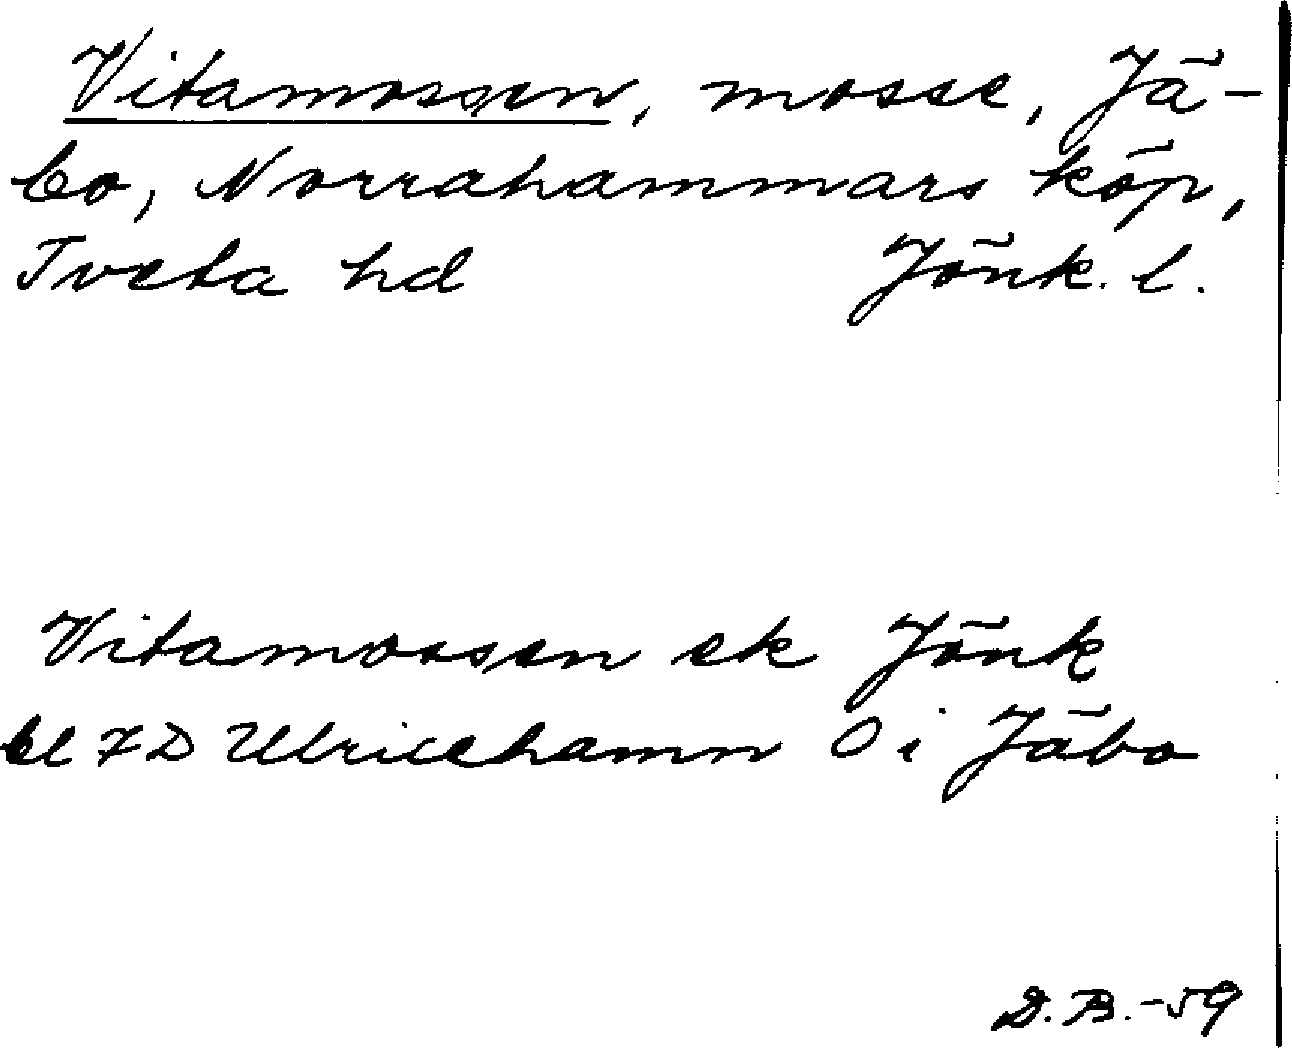 Vitamossen, mosse, Jä-
bo, Norrahammars köp,
Tveta hd Jönk. l.
Vitamossen ek Jönk
bl 7D Ulricehamn O i Jäbo
D. B. -59